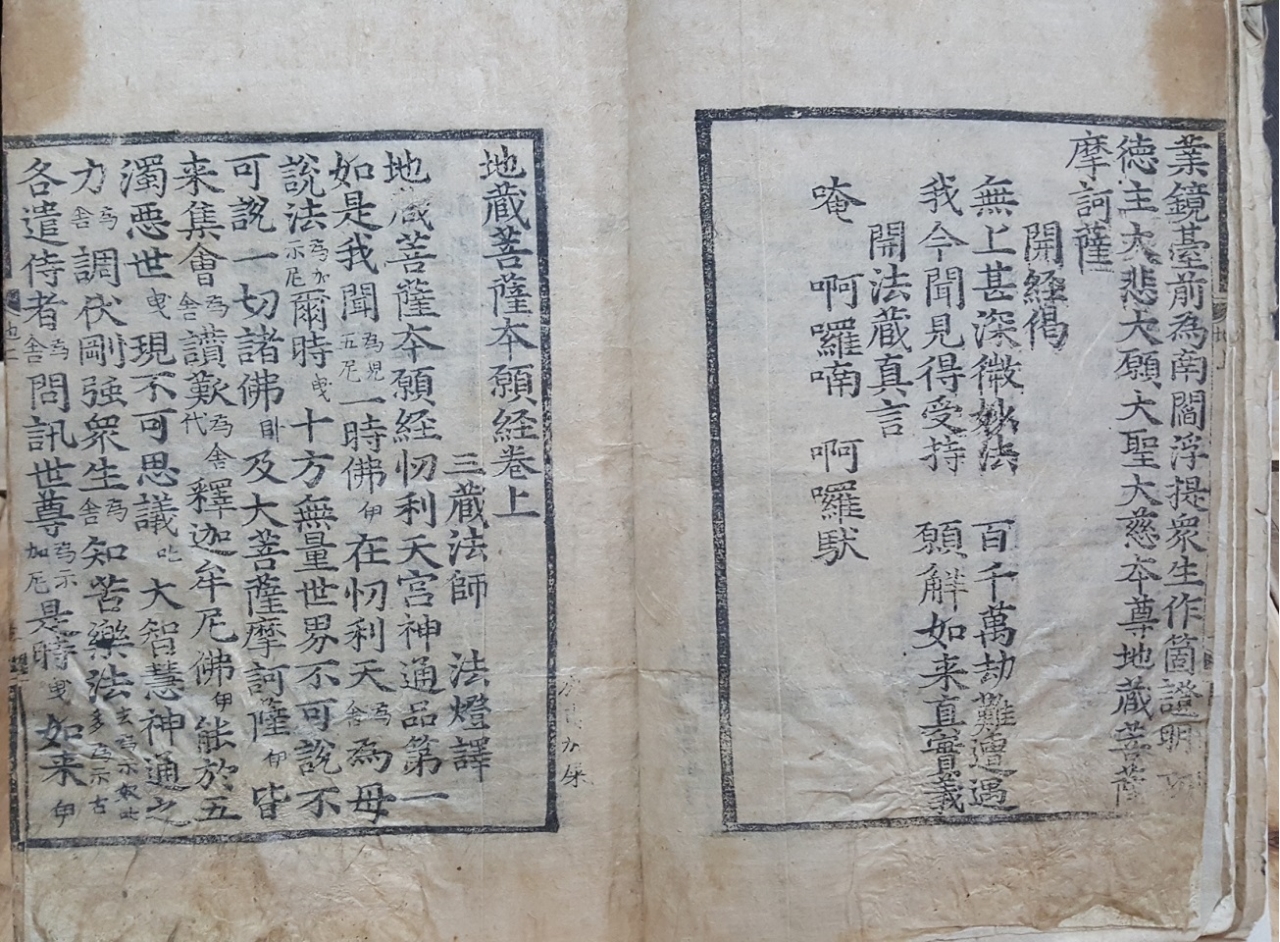 業鏡臺前為南閻浮提衆生作箇證明
德主大悲大願大聖大慈夲尊地蔵菩薩
摩訶薩
開経偈
無上甚深微妙法 百千萬劫難遭遇
我今聞見得受持 願解如来真實義
開法蔵真言
唵 啊囉喃 啊囉䭾
地蔵菩薩夲願経卷上
三蔵法師 法燈譯
地蔵菩薩夲願経忉利天宫神通品第一
如是我聞為見五尼一時佛伊在忉利天為舍為母
說法為加示尼爾時曳十方無量世界不可說不
可說一切諸佛及大菩薩摩訶薩伊皆
来集會為舍讃歎為舍代釋迦牟尼佛伊能於五
濁惡世曳現不可思議叱大智慧神通之
力為舍調伏剛强衆生為舍知苦樂法
各遣侍者為舍問訊世尊為示加尼是時曳如来伊